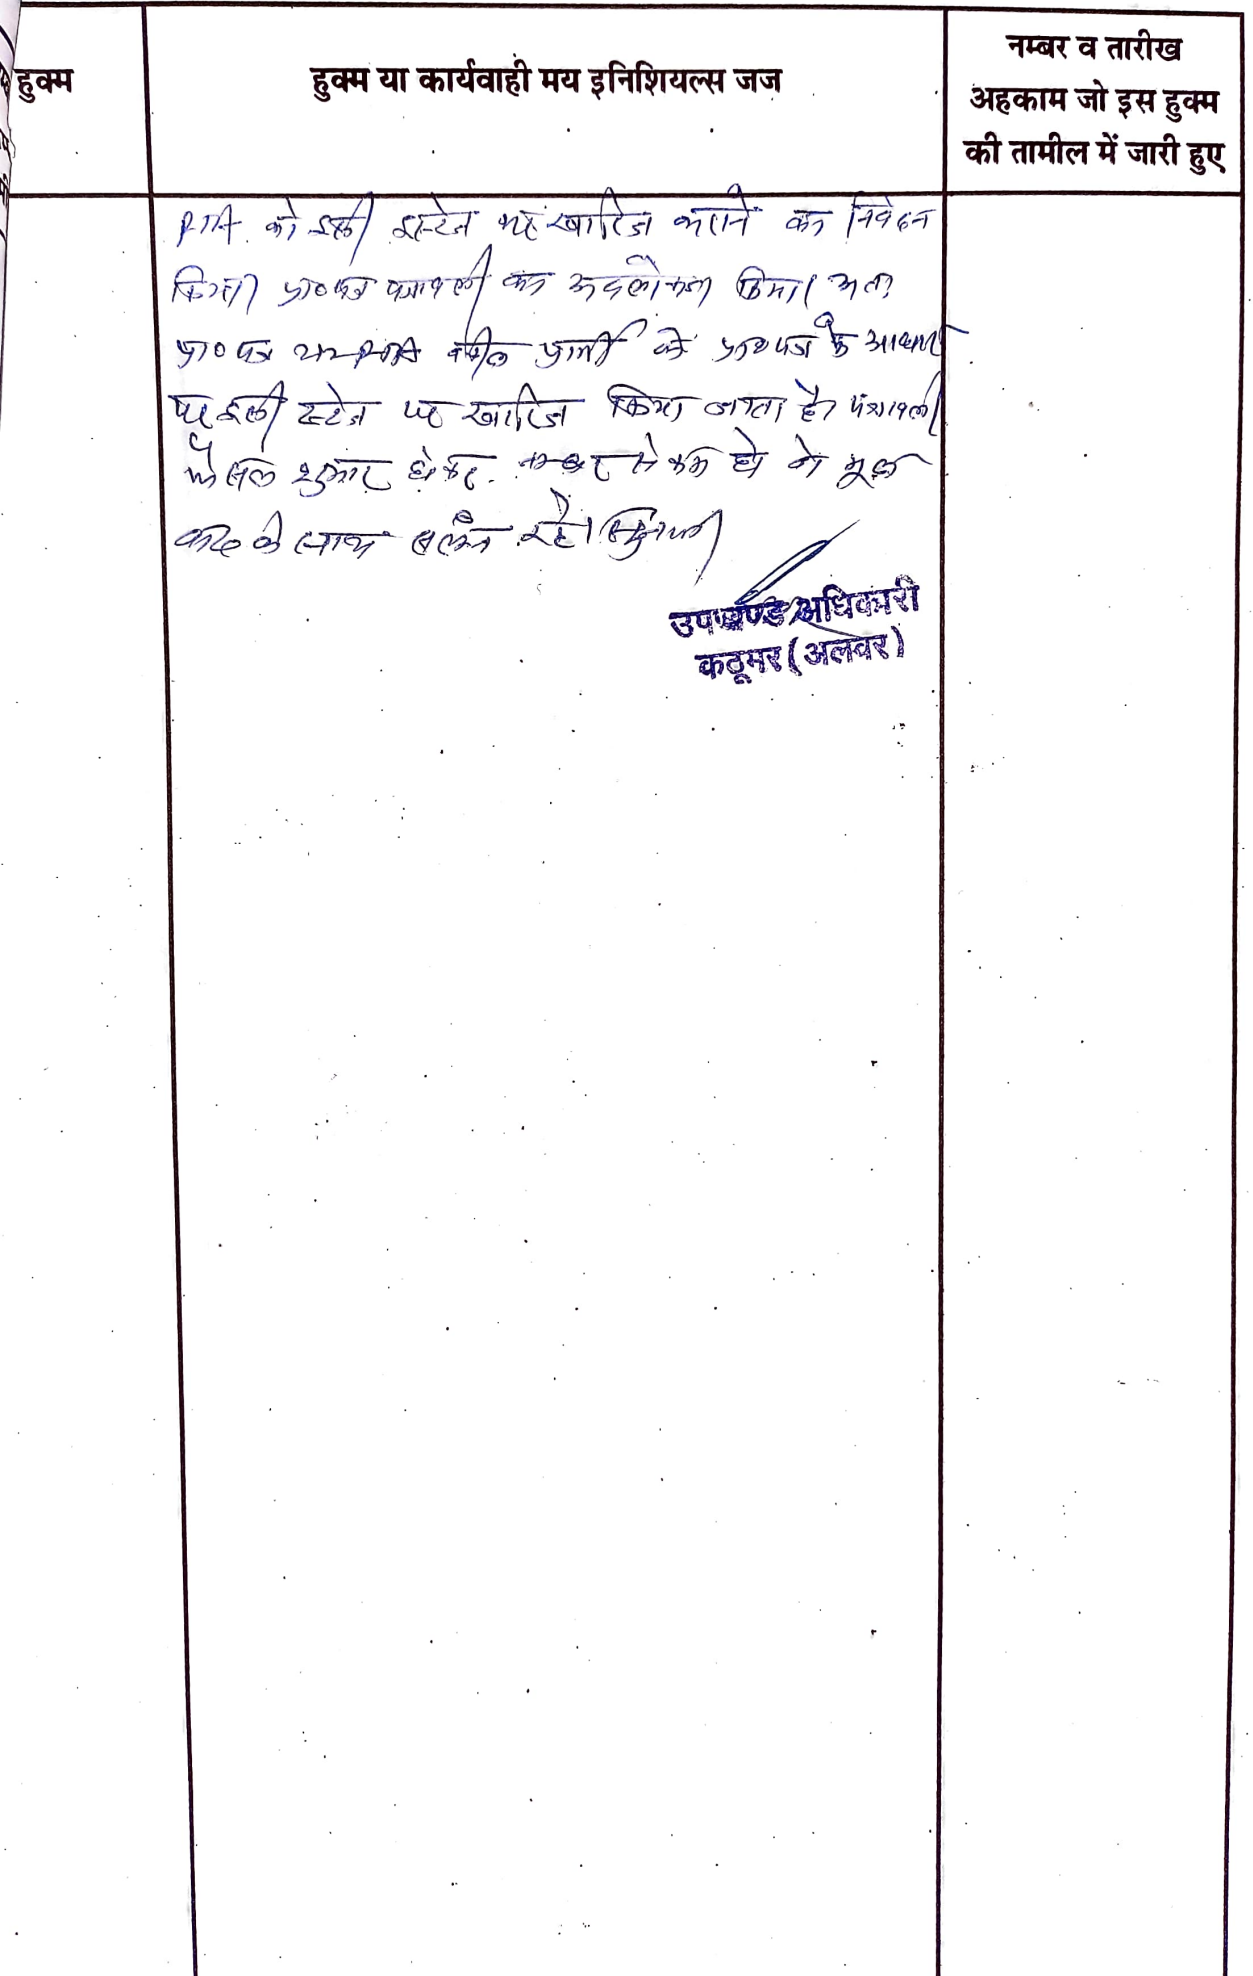 हुक्म
हुक्म या कार्यवाही मय इनिशियल्स जज
नम्बर व तारीख
अहकाम जो इस हुक्म
की तामील में जारी हुए
को इसी स्टेज पर खारिज करने का निवेदन
किया। प्रा०पत्र पत्रावली का अवलोकन किया। अतः
प्रा० पत्र वकील प्रार्थी के प्रा०पत्र के आधार
पर इसी स्टेज पर खारिज किया जाता है। पत्रावली
फैसल शुमार होकर नम्बर से कम हो के मूल
वाद के साथ संलग्न रहे।
उपखण्ड अधिकारी
कठूमर (अलवर)